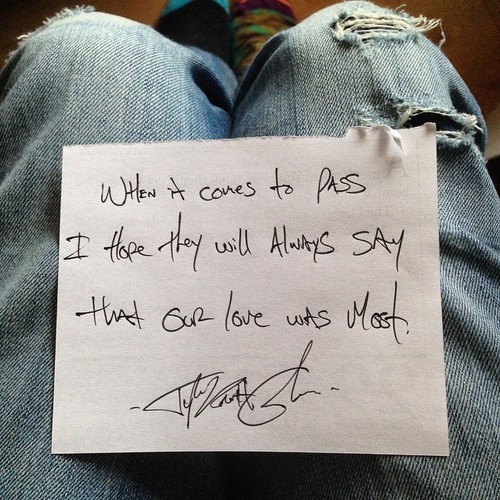 WHEN it comes to PASS
I Hope they will Always SAY
that our love was Most.